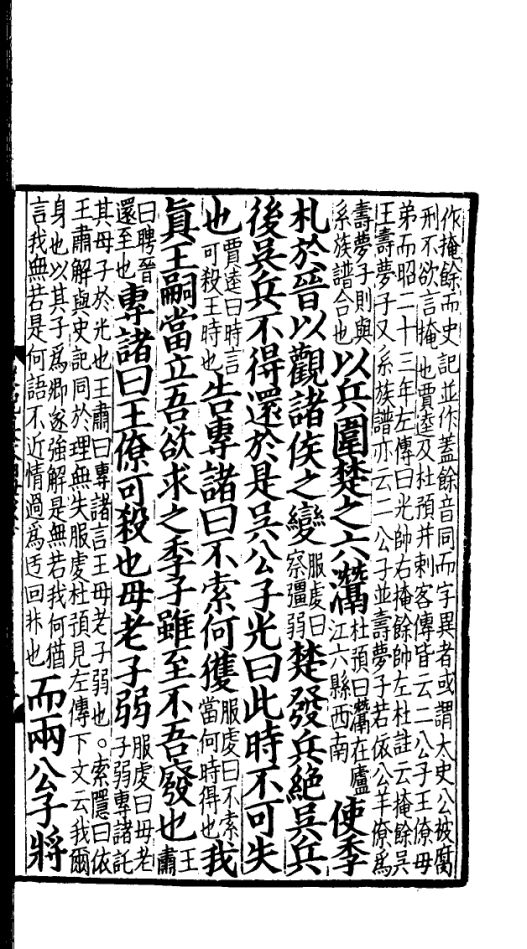 作掩餘而史記並作蓋餘音同而字異者或謂太史公被腐
刑不欲言掩也賈逵及杜預并刺客傳皆云二公子王僚母
弟而昭二十三年左傳曰光帥右掩餘帥左杜註云掩餘吳
王壽夢子又系族譜亦云二公子並壽夢子若依公羊僚爲
壽夢子則與系族譜合也以兵圍楚之六灊杜預曰灊在廬江六縣西南使季
札於晉以觀諸侯之變服虔曰察彊弱楚發兵絕吳兵
後吳兵不得還於是吳公子光曰此時不可失
也賈逵曰時言可殺王時也告專諸曰不索何獲服虔曰不索當何時得也我
眞王嗣當立吾欲求之季子雖至不吾廢也王肅
曰聘晉還至也專諸曰王僚可殺也母老子弱服虔曰母老子弱專諸託
其母子於光也王肅曰專諸言王母老子弱也。索隱曰依
王肅解與史記同於理無失服虔杜預見左傳下文云我爾
身也以其子爲卿遂強解是無若我何猶言我無若是何語不近情過爲迂回非也而兩公子將